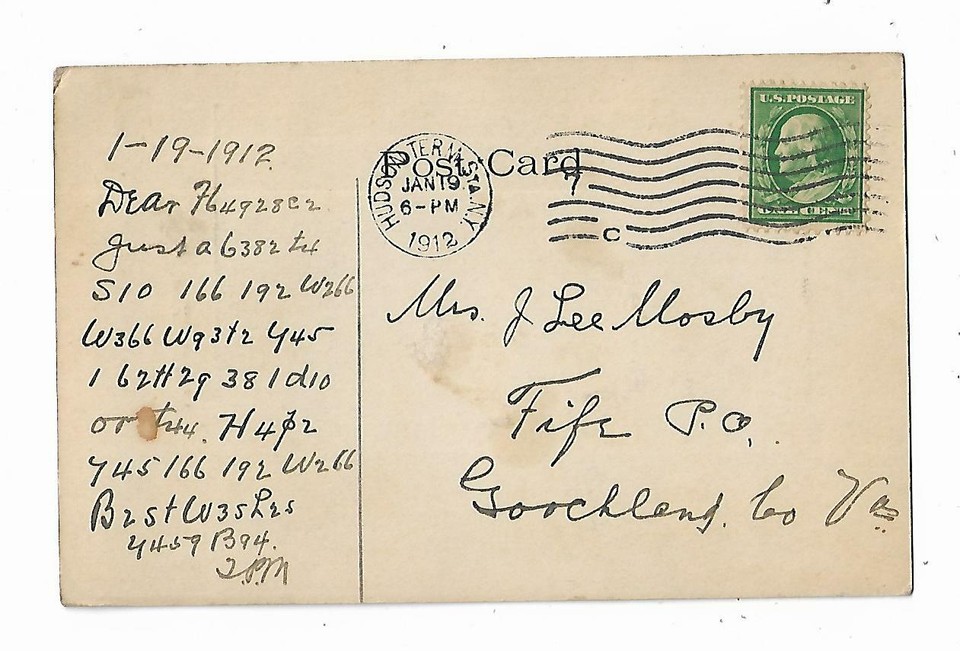 1-19-1912
Dear H4928e2
Just a 6382 t4
S10 166 192 W266
W366 W93t2 Y45
1 62tt29 38 1 d10
or t44. H4p2
Y45 166 192 W266
B2st W3sh2s
Y459 B94.
J.P.M
Post Card
HUDSON TERM. STA. N.Y.
JAN 19
6-PM
1912
7
C
U.S. POSTAGE
Mrs. J Lee Mosby
Fife P.O.
Goochland. Co Va.